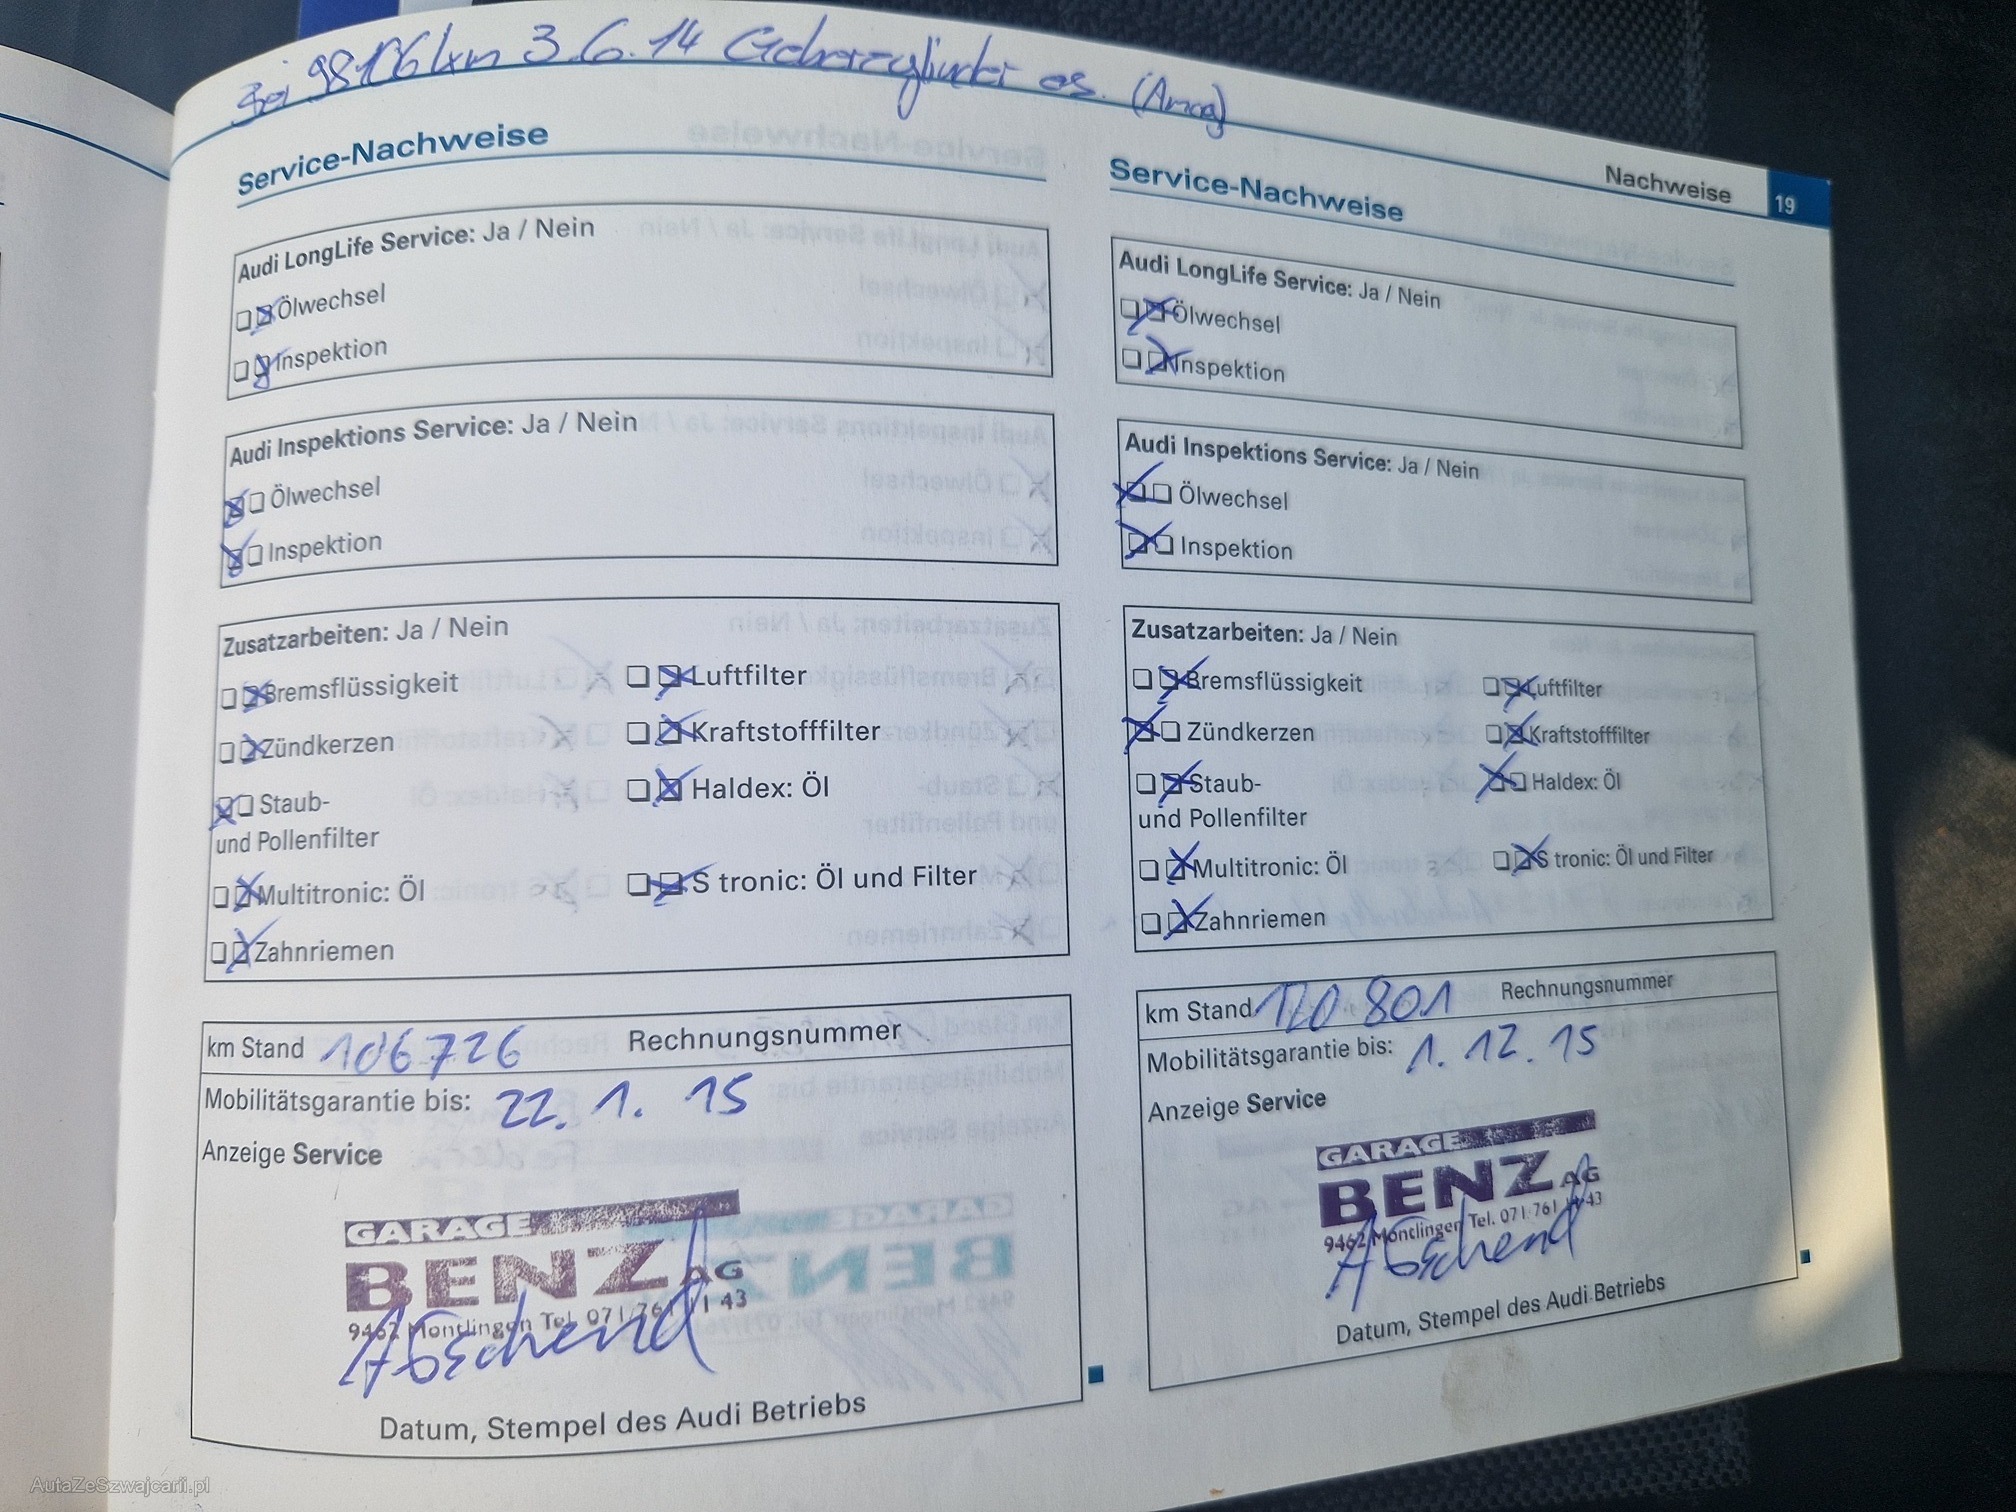 Bei 98106 km 3.6.14 Geberzylinder os. (Amag)
Nachweise 19
Service-Nachweise
Audi LongLife Service: Ja / Nein
Ölwechsel
Inspektion
Audi Inspektions Service: Ja / Nein
Ölwechsel
Inspektion
Zusatzarbeiten: Ja / Nein
Bremsflüssigkeit Luftfilter
Zündkerzen Kraftstofffilter
Staub- Haldex: Öl
und Pollenfilter
Multitronic: Öl S tronic: Öl und Filter
Zahnriemen
km Stand 106726 Rechnungsnummer
Mobilitätsgarantie bis: 22. 1. 15
Anzeige Service
GARAGE
BENZ AG
9462 Montlingen Tel. 071/761 11 43
Datum, Stempel des Audi Betriebs
Service-Nachweise
Audi LongLife Service: Ja / Nein
Ölwechsel
Inspektion
Audi Inspektions Service: Ja / Nein
Ölwechsel
Inspektion
Zusatzarbeiten: Ja / Nein
Bremsflüssigkeit Luftfilter
Zündkerzen Kraftstofffilter
Staub- Haldex: Öl
und Pollenfilter
Multitronic: Öl S tronic: Öl und Filter
Zahnriemen
km Stand 120 801 Rechnungsnummer
Mobilitätsgarantie bis: 1. 12. 15
Anzeige Service
GARAGE
BENZ AG
9462 Montlingen Tel. 071/761 11 43
Datum, Stempel des Audi Betriebs
AutaZeSzwajcarii.pl